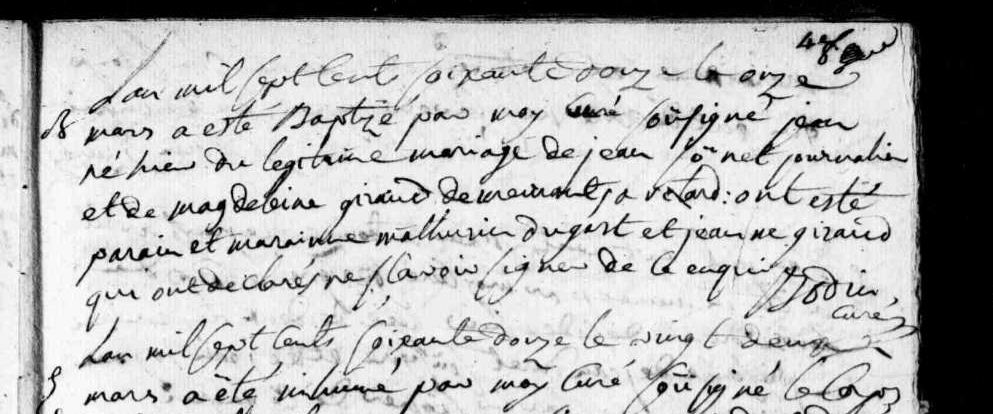 Lan mil sept cents soixante douze le onze
B mars a esté Baptizé par moy curé soûsigné jean
né hier du legitime mariage de jean journalier
et de magdeleine giraud demeurants a : ont esté
parain et maraine mathurin dugast et jeanne giraud
qui ont declarés ne sçavoir signer de ce enquis
curé
Lan mil sept cents soixante douze le vingt deux
S mars a èté inhumé par moy curé soûsigné le corps